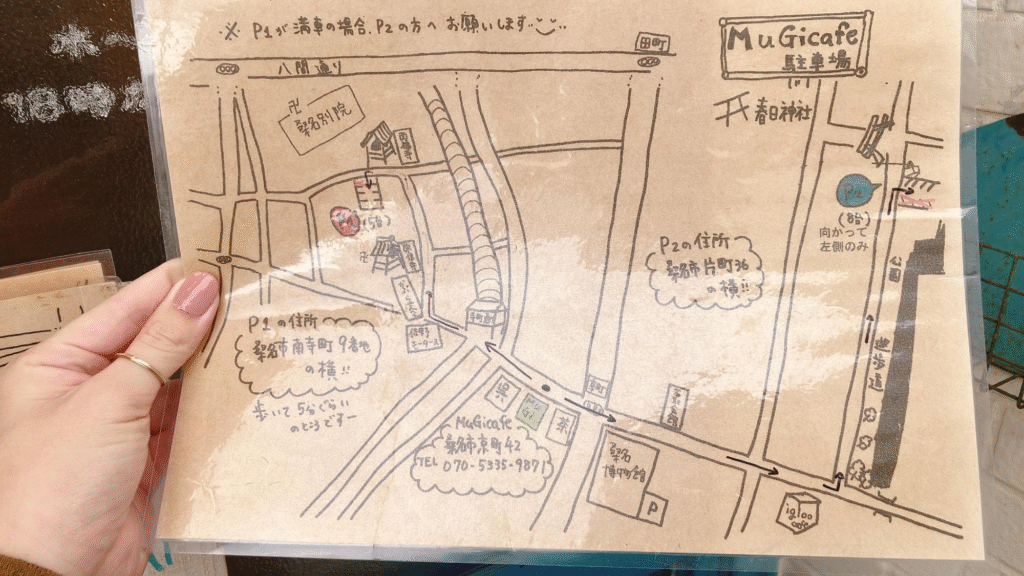 ※ P1が満車の場合、P2の方へ お願いします
MuGicafe
駐車場
田町
八間通り
卍
桑名別院
春日神社
P2
(8台)
向かって
左側のみ
(5台)
卍
P2の住所
桑名市片町36
の横!!
公園
遊歩道
P1の住所
桑名市南寺町9番地
の横!!
歩いて5分ぐらい
のところですー
MuGi
MuGicafe
桑名市京町42
TEL 070-5335-9871
桑名
博物館
P
igloo
cafe